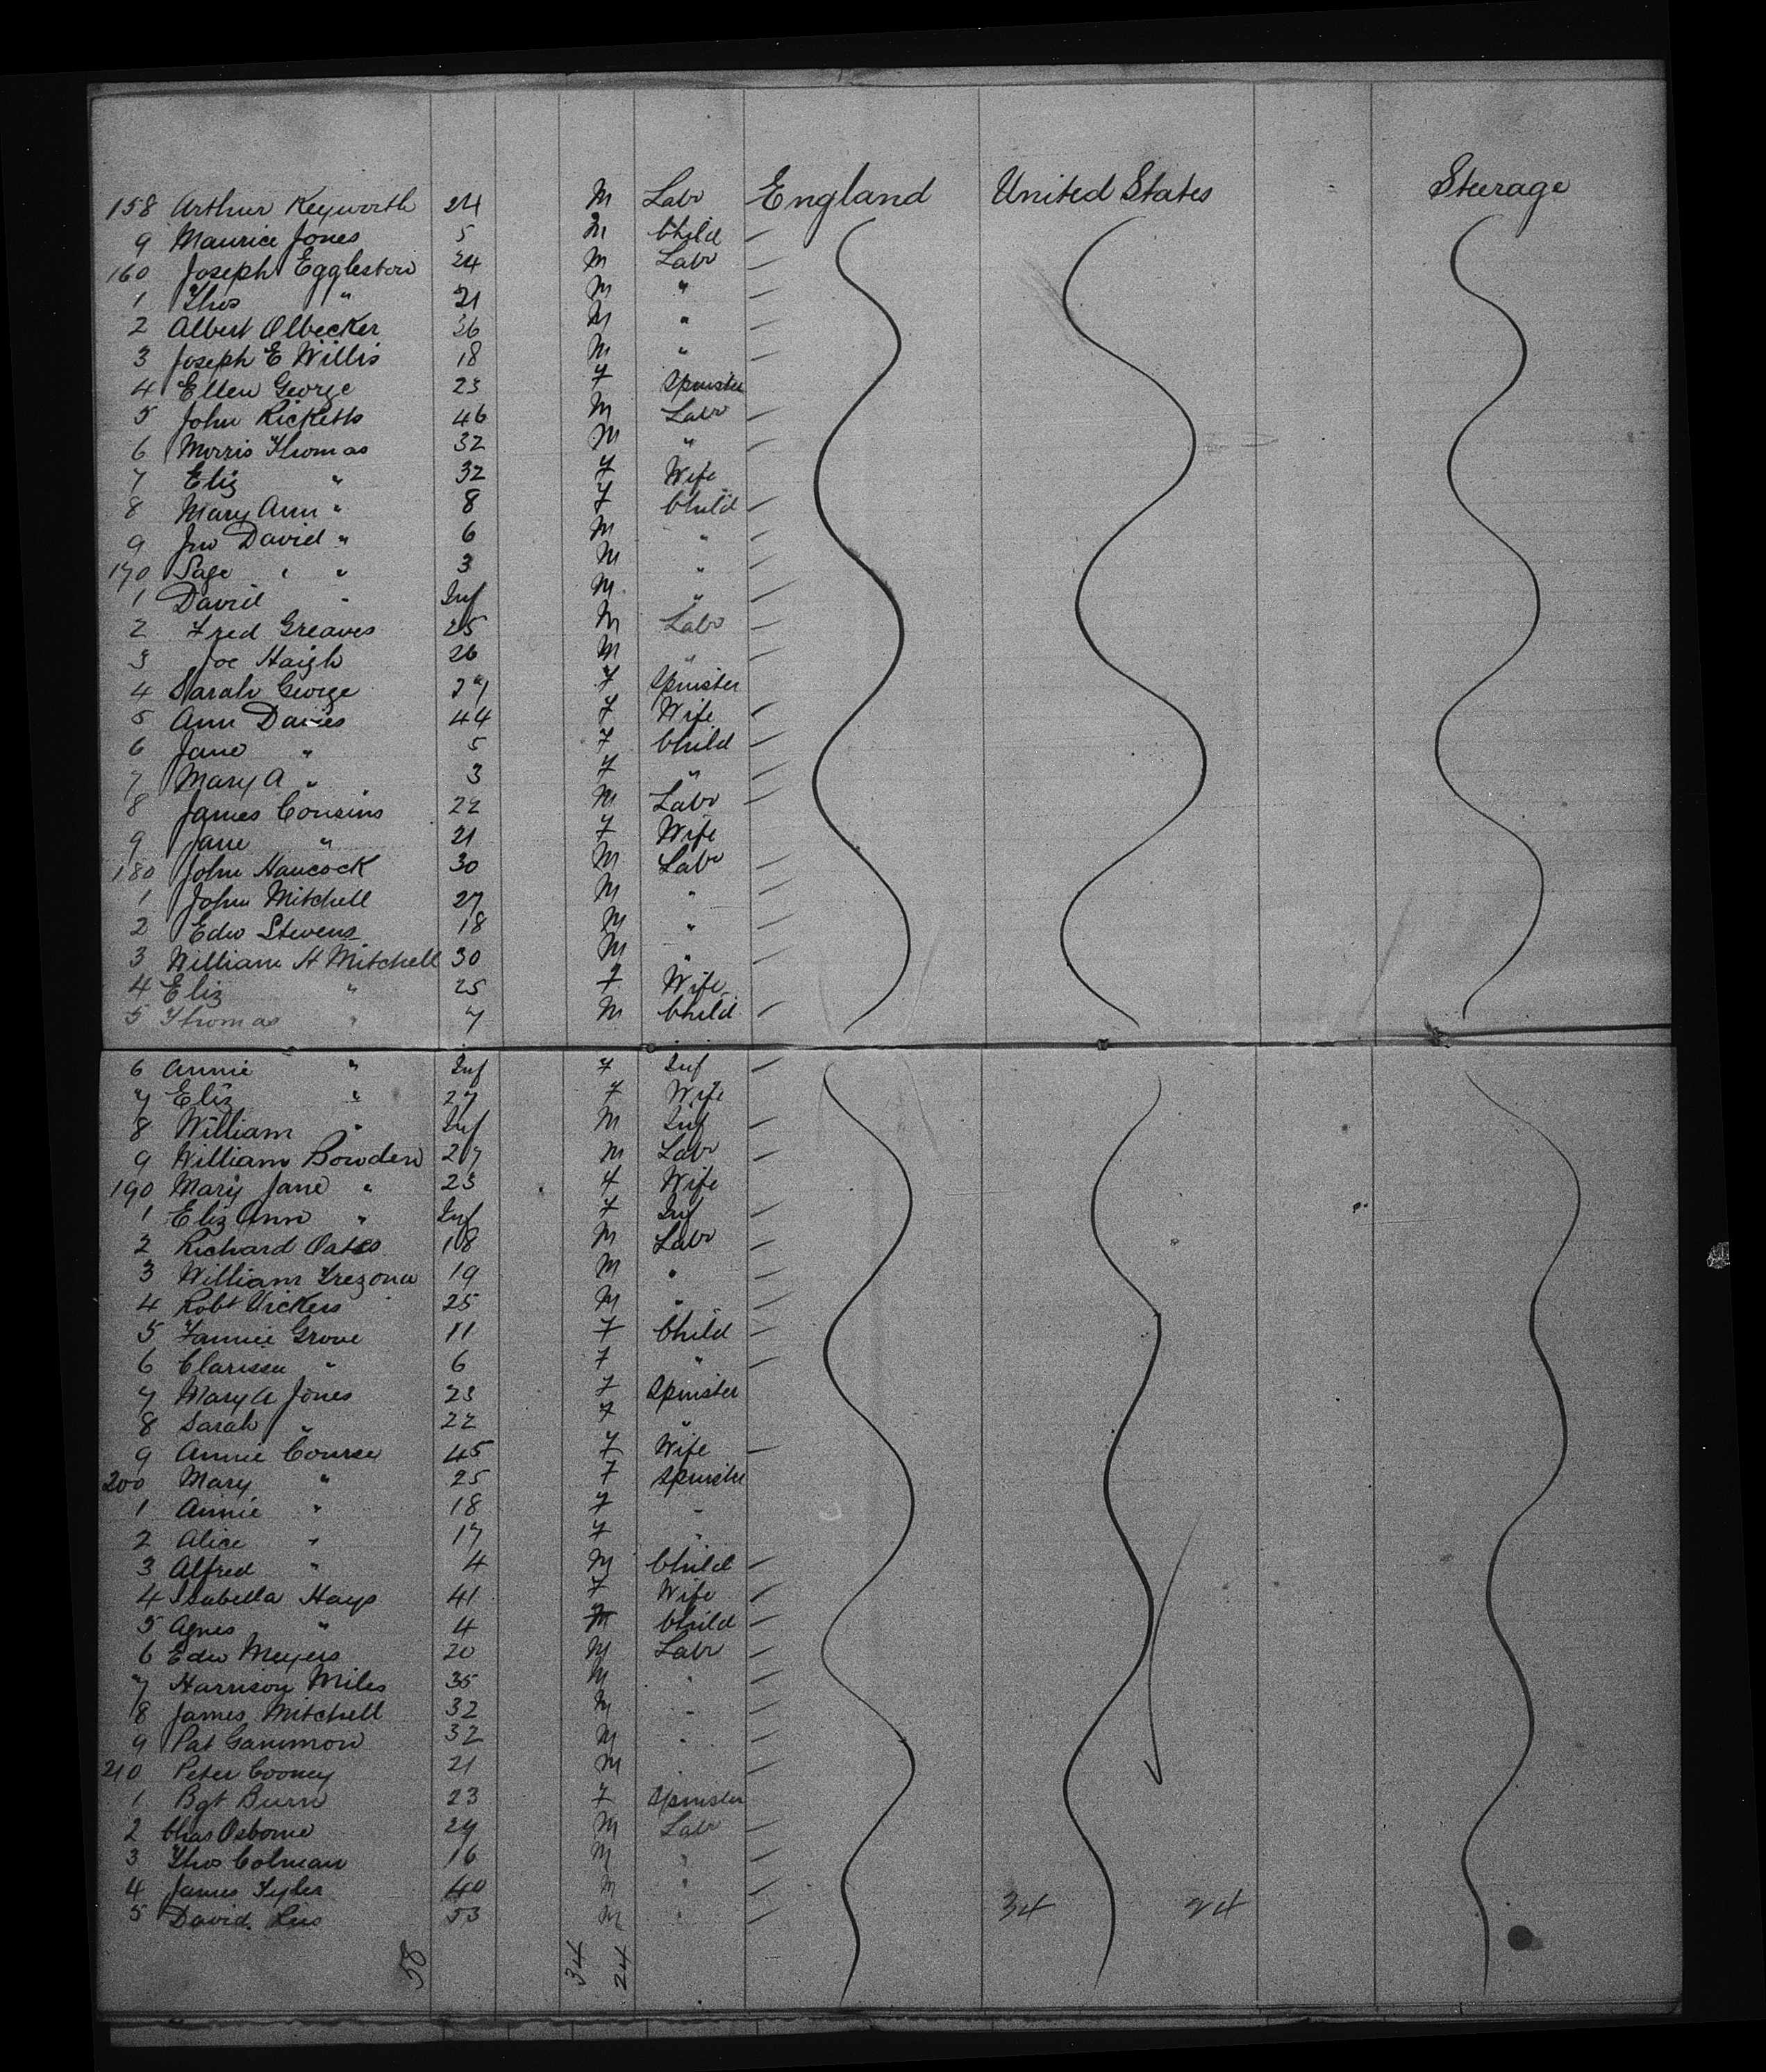 158 Arthur Keyworth 24 M Labr England United States Steerage
9 Maurice Jones 5 M Child
160 Joseph Eggleston 24 M Labr
1 Thos " 21 M "
2 Albert Olbecker 36 M "
3 Joseph E Willis 18 M "
4 Ellen George 23 F Spinster
5 John Ricketts 46 M Labr
6 Morris Thomas 32 M "
7 Eliz " 32 F Wife
8 Mary Ann " 8 F Child
9 Jno David " 6 M "
170 Sage " " 3 M "
1 David " Inf M "
2 Fred Greaves 25 M Labr
3 Joe Haigh 26 M "
4 Sarah George 27 F Spinster
5 Ann Davies 44 F Wife
6 Jane " 5 F Child
7 Mary A " 3 F "
8 James Cousins 22 M Labr
9 Jane " 21 F Wife
180 John Hancock 30 M Labr
1 John Mitchell 27 M "
2 Edw Stevens 18 M "
3 William H Mitchell 30 M "
4 Eliz " 25 F Wife
5 Thomas " 7 M Child
6 Annie " Inf F Inf
7 Eliz " 27 F Wife
8 William " Inf M Inf
9 William Bowden 27 M Labr
190 Mary Jane " 23 F Wife
1 Eliz Ann " Inf F Inf
2 Richard Oates 18 M Labr
3 William Trezona 19 M "
4 Robt Vickers 25 M "
5 Fannie Grove 11 F Child
6 Clarissa " 6 F "
7 Mary A Jones 23 F Spinster
8 Sarah " 22 F "
9 Annie Course 45 F Wife
200 Mary " 25 F Spinster
1 Annie " 18 F "
2 Alice " 17 F "
3 Alfred " 4 M Child
4 Isabella Hays 41 F Wife
5 Agnes " 4 Child
6 Edw Meyers 20 M Labr
7 Harrison Miles 35 M "
8 James Mitchell 32 M "
9 Pat Gammon 32 M "
210 Peter Cooney 21 M "
1 Bgt Burn 23 F Spinster
2 Chas Osborne 24 M Labr
3 Thos Colman 16 M "
4 James Tyler 40 M "
5 David Lees 53 M "
34 24
58 34 24